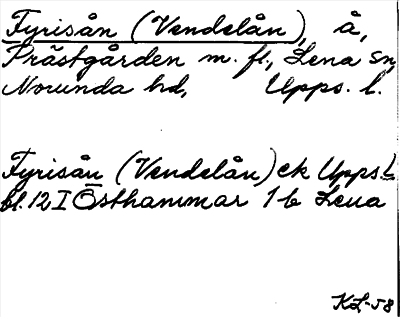 Fyrisån (Vendelån), å,
Prästgården m. fl., Lena sn,
Norunda hd, Upps. l.
Fyrisån (Vendelån) ek Upps. L
bl. 12 I Östhammar 1 b Lena
KL-58